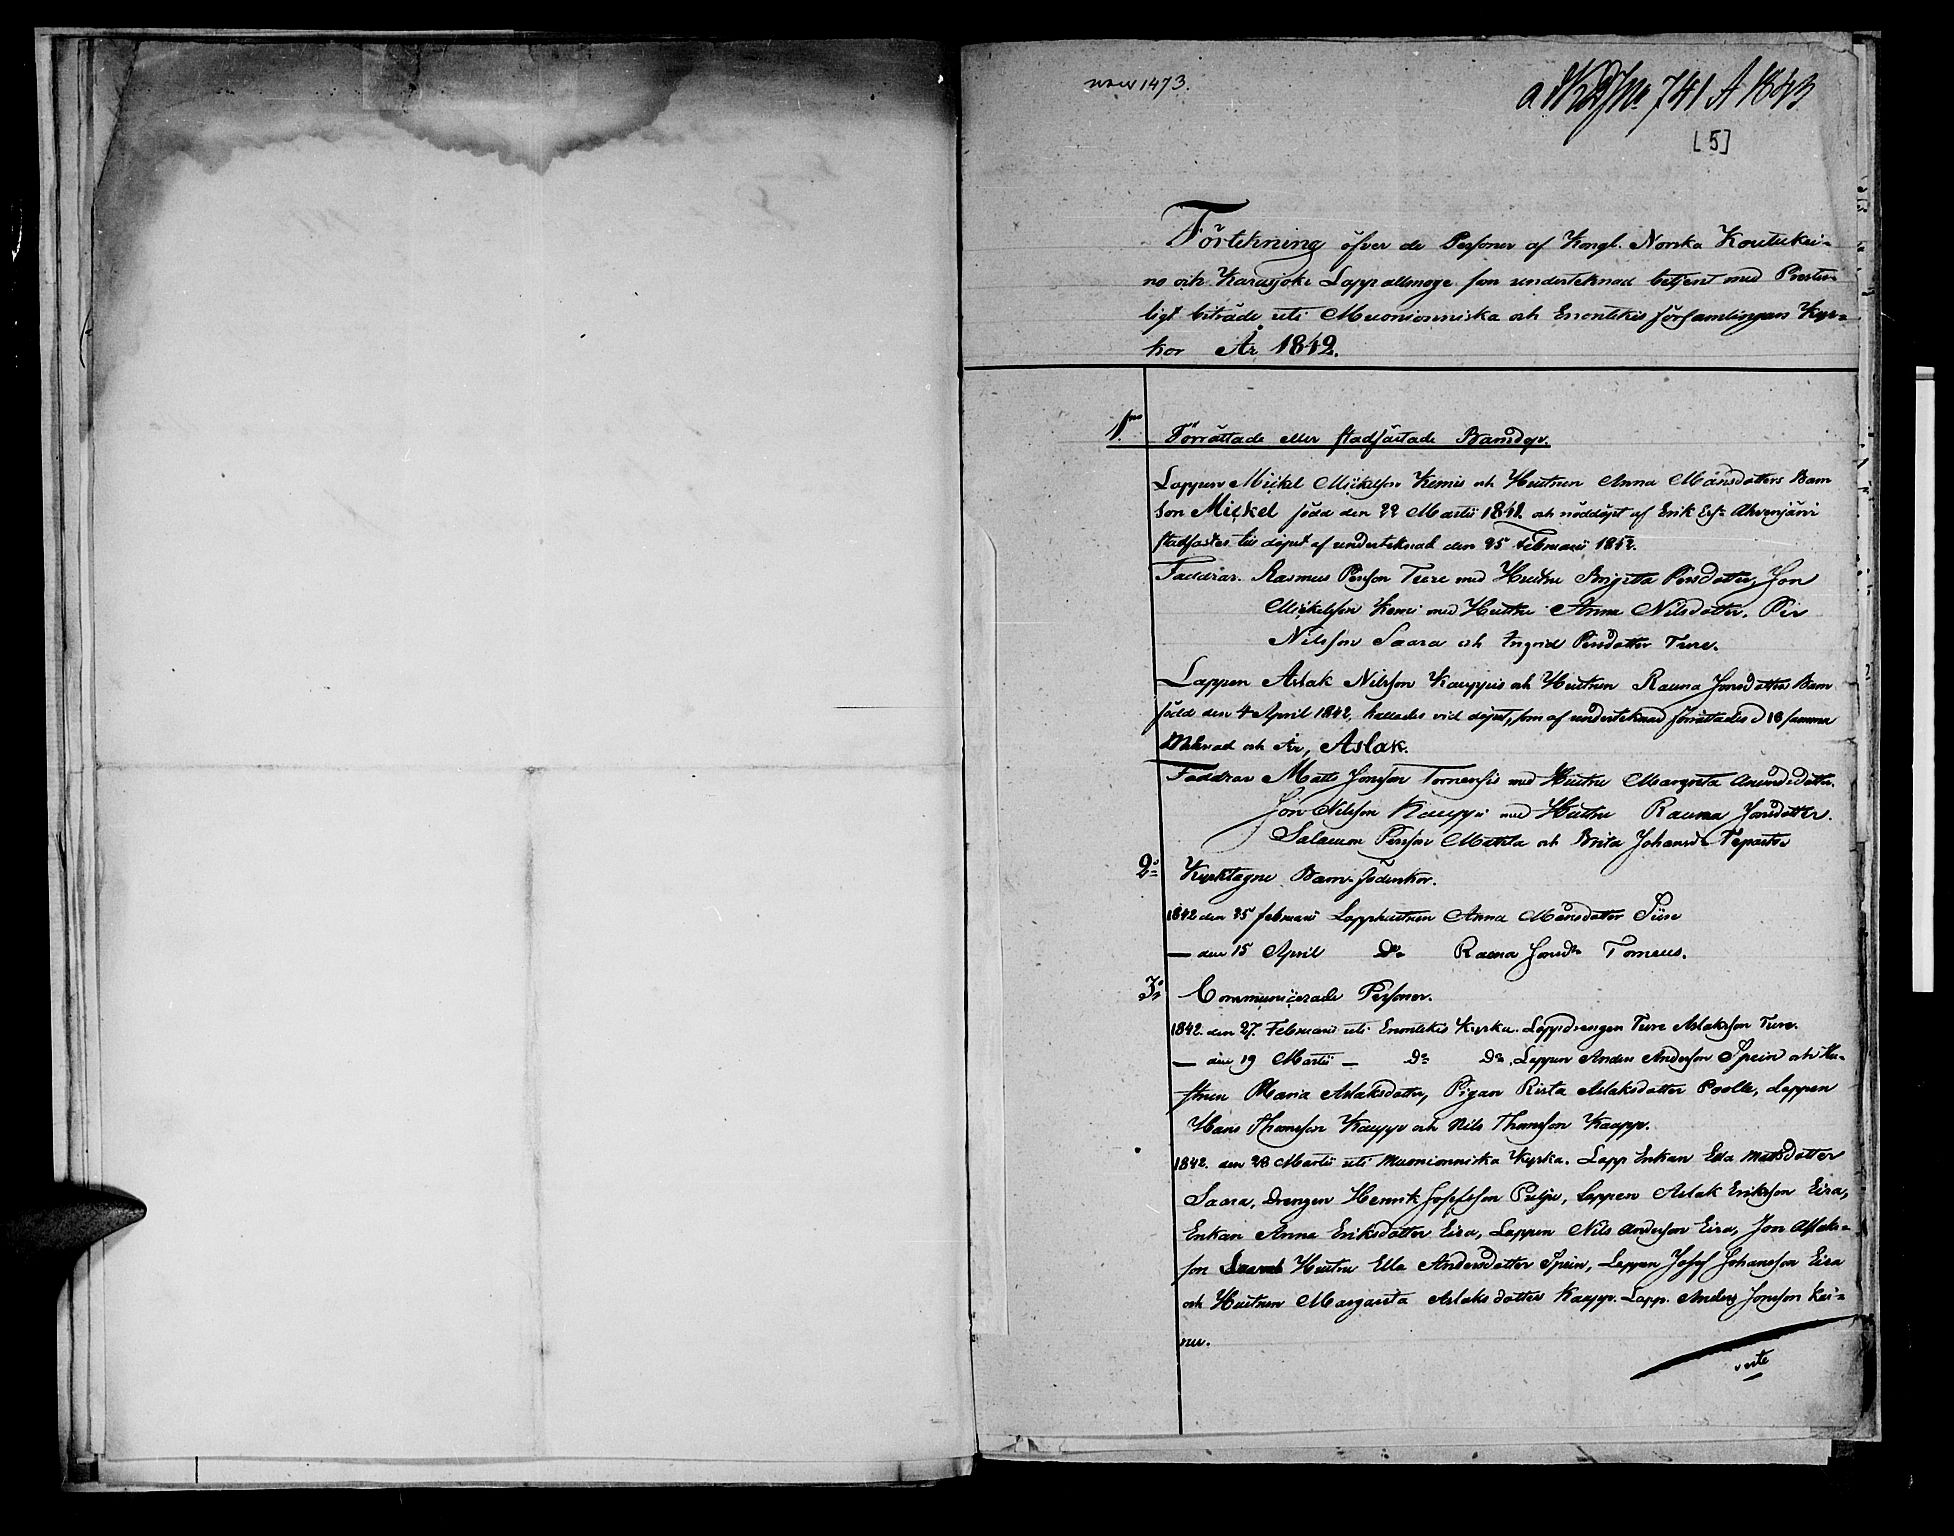 1473.
741 A 1843
[5]
Förtekning öfver de Personer af Kongl. Norska Koutukei-
no och Karasjoki Lappallmoge som undertecknad betjent med Prester-
ligt biträde uti Muonionniska och Enontekis församlingars Kyr-
kor År 1842.
1mo Förrättade eller stadfästade Barndop.
Lappen Mickel Mickelson Kemis och Hustrun Anna Månsdotters Barn
Son Mickel född den 22 Martii 1841. och nöddöpt af Erik Ers: Ahvenjärvi
stadfästes till döpet af undertecknad den 25 Februarii 1842.
Faddrar. Rasmus Person Ture med Hustru Brigitta Persdotter, Jon
Mickelson Kemi med Hustru Anna Nilsdotter. Per
Nilsson Saara och Ingrid Persdotter Ture.
Lappen Aslak Nilsson Kauppis och Hustrun Rauna Jonsdotters Barn
född den 4 April 1842, kallades vid döpet, som af undertecknad förrättades d 18 samma
Månad och År, Aslak.
Faddrar Matts Jonsson Tornensis med Hustru Margreta Amundsdotter.
Jon Nilsson Kauppi med Hustru Rauna Jonsdotter.
Salamon Persson Mattila och Brita Johansd:r
2:o Kyrktagne Barn-föderskor.
1842 den 25 februarii Lapphustrun Anna Månsdotter
— den 15 April D:o Rauna Jonsd:r Torneus.
3:o Communicerade Personer.
1842. den 27. Februarii uti Enontekis Kyrka. Lappdrengen Ture Aslaksson Ture.
— den 19 Martii — D:o D:o. Lappen Anders Andersson Spein och Hu-
strun Maria Aslaksdotter, Pigan Rista Aslaksdotter Poolle, Lappen
Hans Thomsson Kaupp och Nils Thomsson Kaupp.
1842. den 28 Martii uti Muonionniska Kyrka. Lapp Enkan Ella Mattsdotter
Saara, Drengen Henrik Josefsson Puljo, Lappen Aslak Eriksson Eira,
Enkan Anna Eriksdotter Eira, Lappen Nils Andersson Eira, Jon Aslaks-
son Hustru Ella Andersdotter Spein, Lappen Josef Johansson Eira
och Hustrun Margareta Aslaksdotter Kaupp. Lapp. Anders Jonsson Kei-
nu.
verte